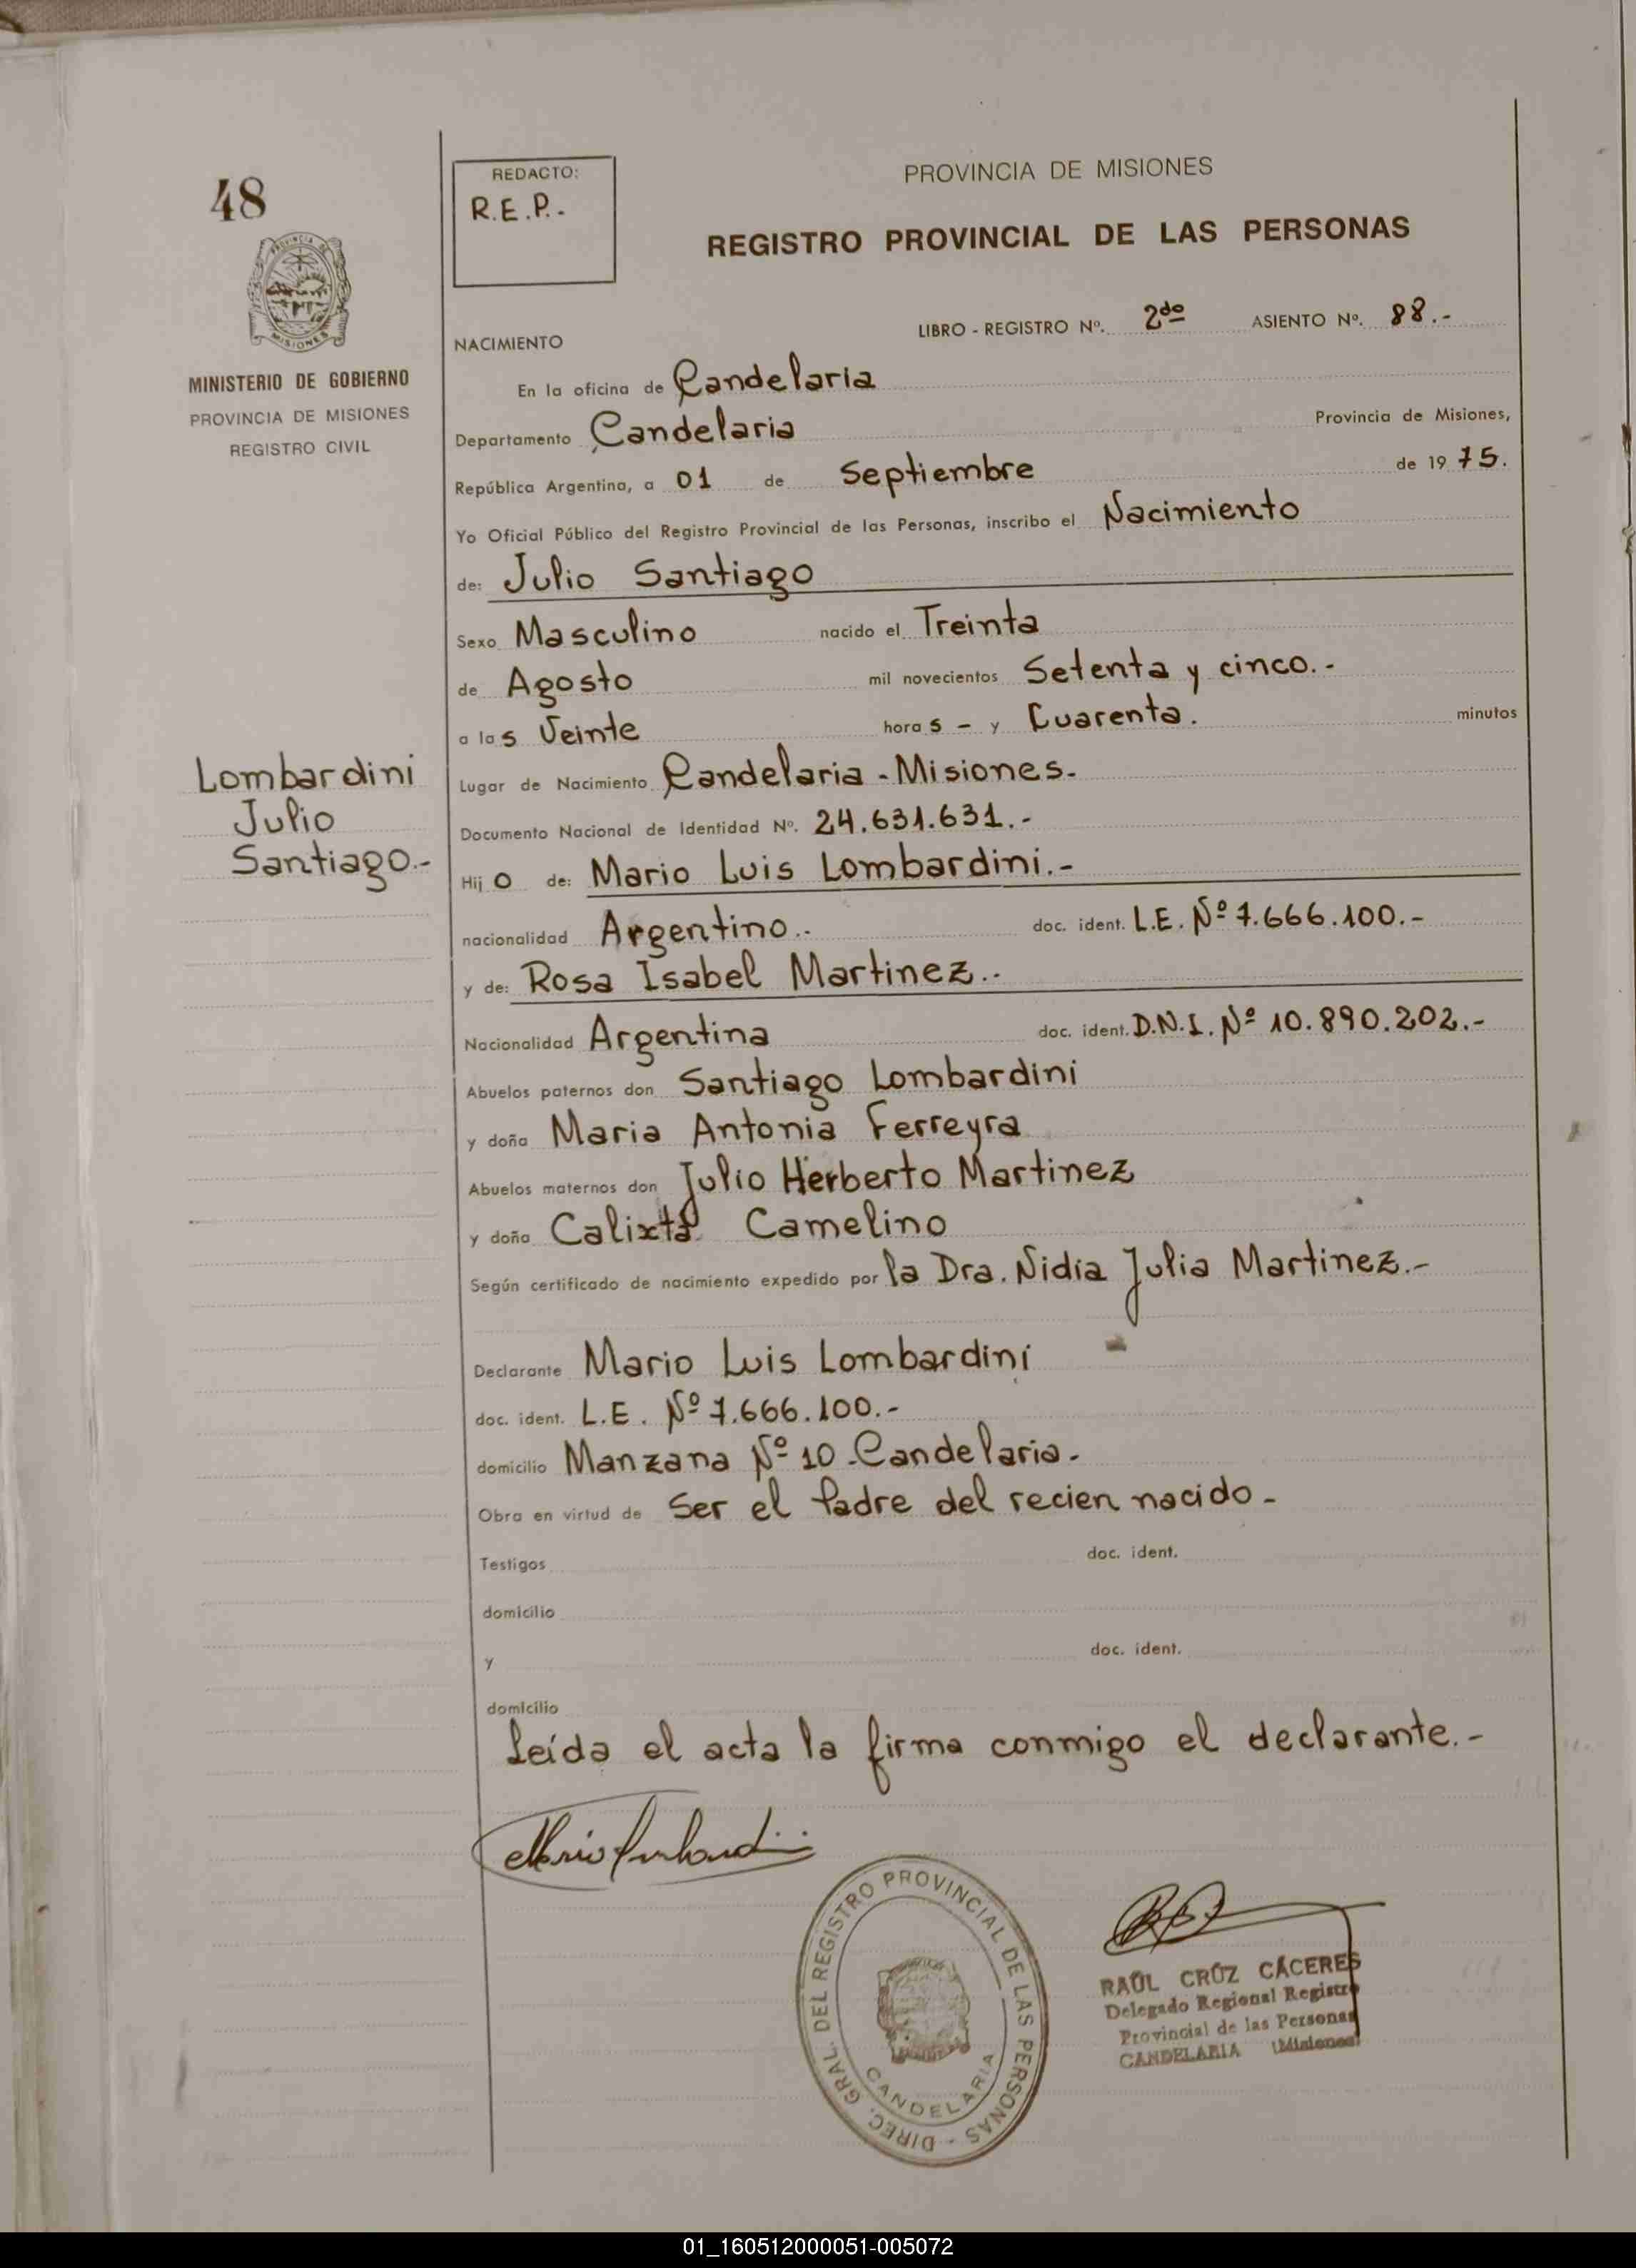 48
PROVINCIA DE MISIONES
MINISTERIO DE GOBIERNO
PROVINCIA DE MISIONES
REGISTRO CIVIL
Lombardini
Julio
Santiago.-
REDACTO:
R.E.P.-
PROVINCIA DE MISIONES
REGISTRO PROVINCIAL DE LAS PERSONAS
LIBRO - REGISTRO Nº. 2do ASIENTO Nº. 88.-
NACIMIENTO
En la oficina de Candelaria
Departamento Candelaria Provincia de Misiones,
República Argentina, a 01 de Septiembre de 1975.
Yo Oficial Público del Registro Provincial de las Personas, inscribo el Nacimiento
de: Julio Santiago
Sexo Masculino nacido el Treinta
de Agosto mil novecientos Setenta y cinco.-
a las Veinte horas - y Cuarenta. minutos
Lugar de Nacimiento Candelaria - Misiones.
Documento Nacional de Identidad Nº. 24.631.631.-
Hijo de: Mario Luis Lombardini.-
nacionalidad Argentino.. doc. ident. L.E. Nº 7.666.100.-
y de: Rosa Isabel Martinez..
Nacionalidad Argentina doc. ident. D.N.I. Nº 10.890.202.-
Abuelos paternos don Santiago Lombardini
y doña Maria Antonia Ferreyra
Abuelos maternos don Julio Herberto Martinez
y doña Calixta Camelino
Según certificado de nacimiento expedido por la Dra. Nidia Julia Martinez.-
Declarante Mario Luis Lombardini
doc. ident. L.E. Nº 7.666.100.-
domicilio Manzana Nº 10 - Candelaria.
Obra en virtud de Ser el Padre del recien nacido -
Testigos doc. ident.
domicilio
y doc. ident.
domicilio
Leída el acta la firma conmigo el declarante.-
DIREC. GRAL. DEL REGISTRO PROVINCIAL DE LAS PERSONAS -
CANDELARIA
RAÚL CRÚZ CÁCERES
Delegado Regional Registro
Provincial de las Personas
CANDELARIA (Misiones)
01_160512000051-005072